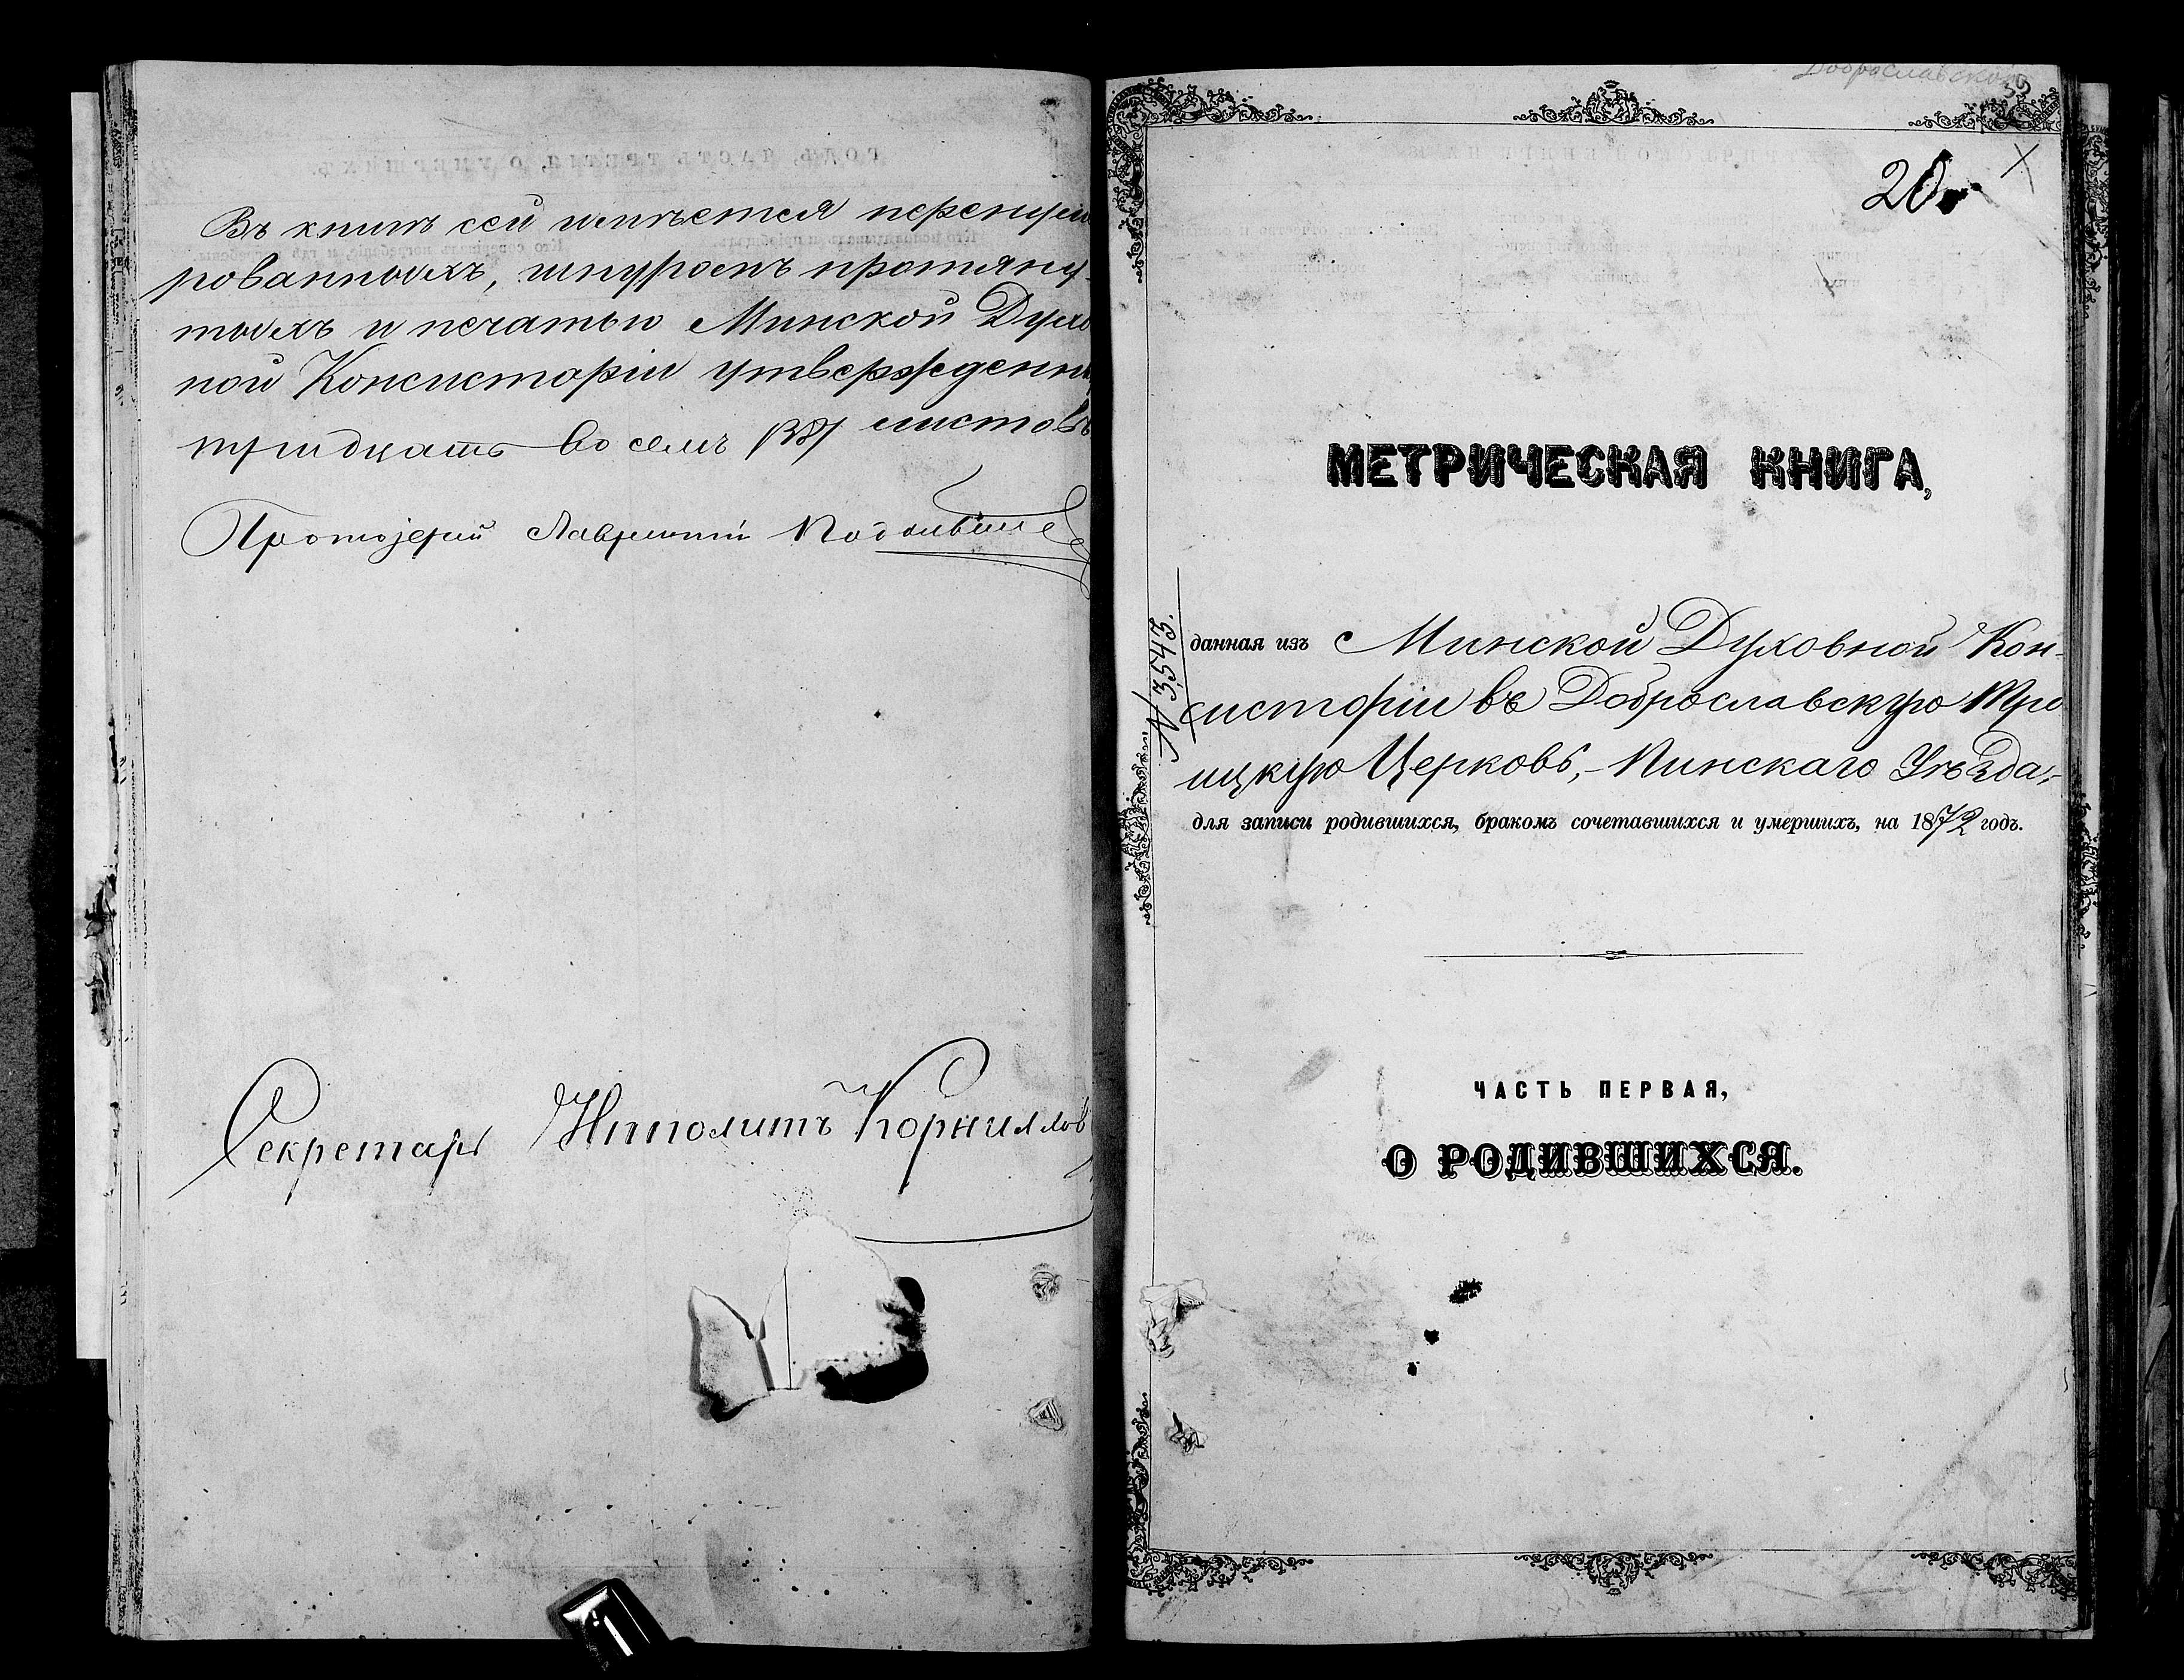 Въ книгѣ сей имѣется перенуме
рованныхъ, шнуромъ протяну-
тыхъ и печатью Минской Духо
ной Консисторіи утвержденны
тридцать восемь /38/ листовъ
Протоіерей Лаврентій
Секретарь Ипполитъ Корниллов
Доброславской
39
20
№ 3543.
МЕТРИЧЕСКАЯ КНИГА,
данная изъ Минской Духовной Кон-
систоріи въ Доброславскую Тро
ицкую Церковь, - Пинскаго Уѣзда,-
для записи родившихся, бракомъ сочетавшихся и умершихъ, на 1872 годъ.
ЧАСТЬ ПЕРВАЯ,
О РОДИВШИХСЯ.